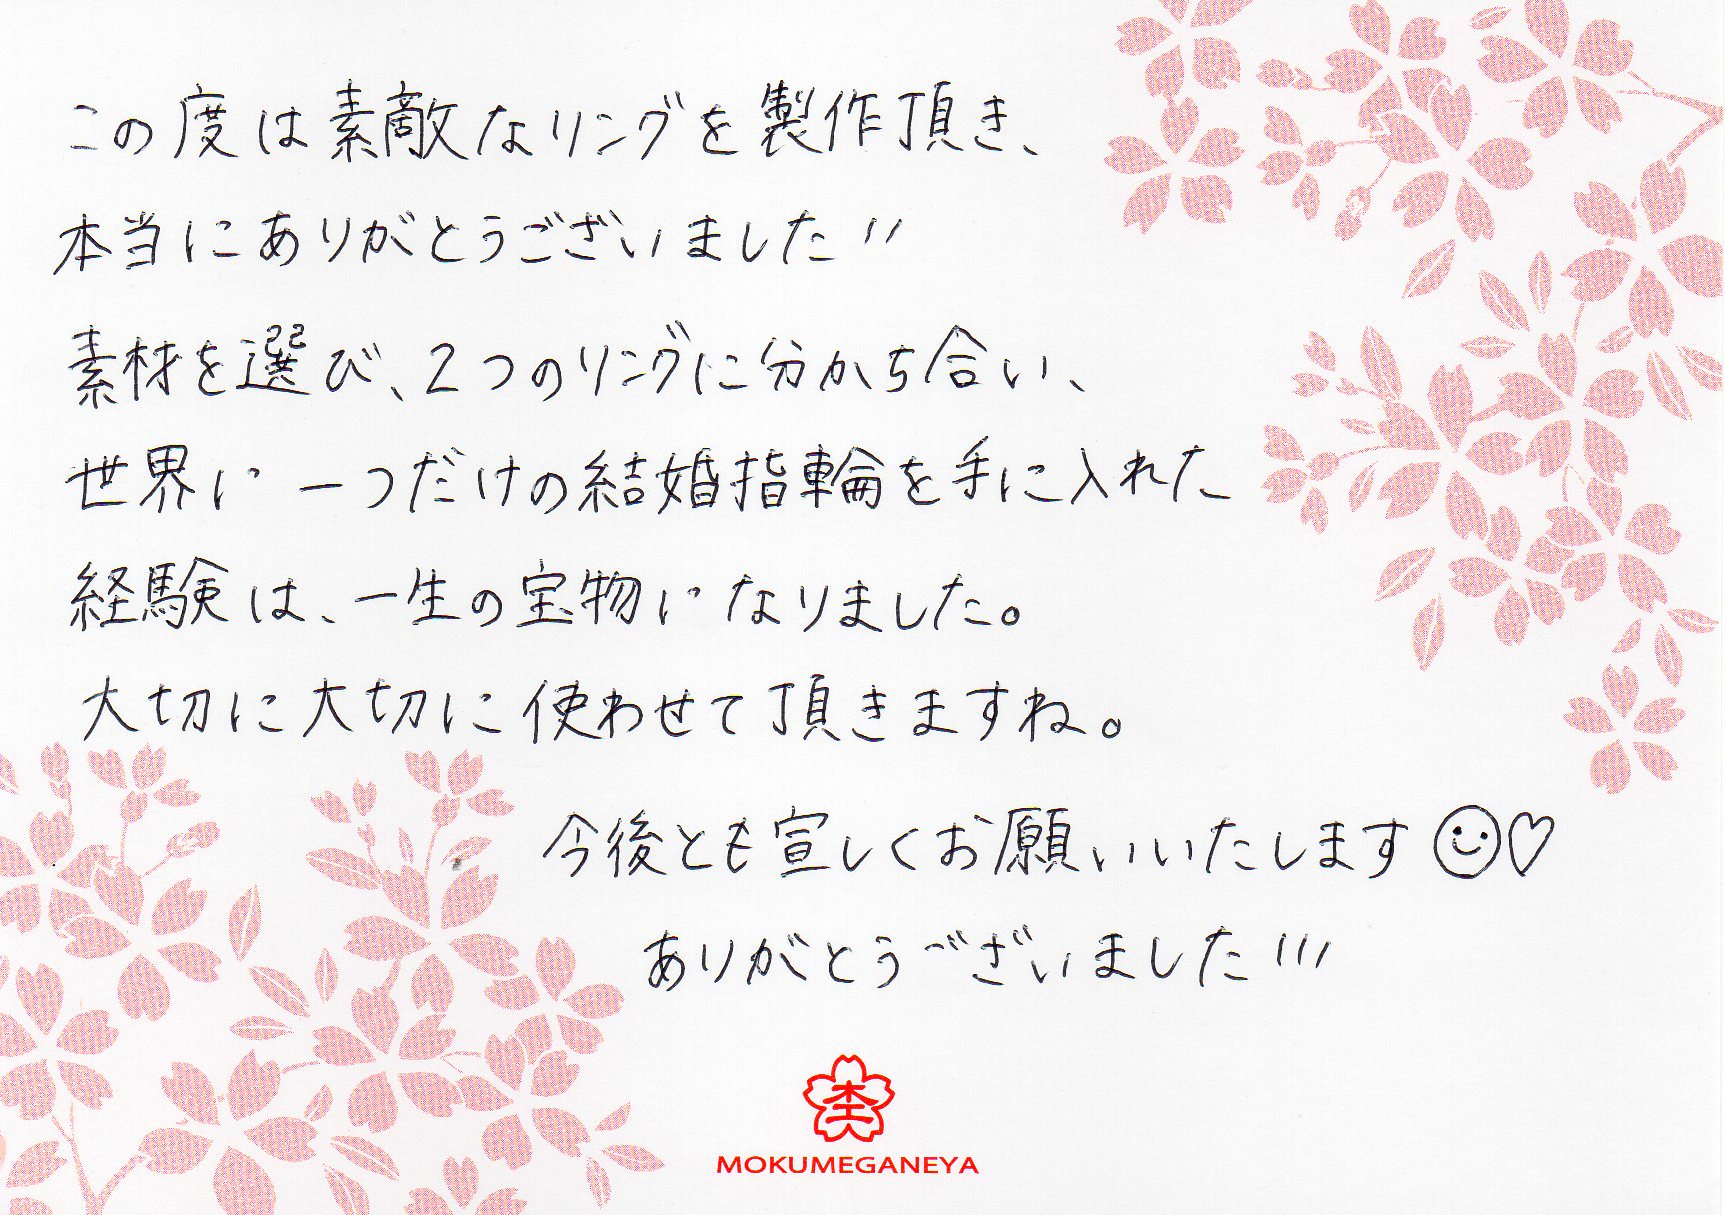 この度は素敵なリングを製作頂き、
本当にありがとうございました!!
素材を選び、2つのリングに分かち合い、
世界に一つだけの結婚指輪を手に入れた
経験は、一生の宝物になりました。
大切に大切に使わせて頂きますね。
今後とも宜しくお願いいたします☺♡
ありがとうございました!!!
杢
MOKUMEGANEYA